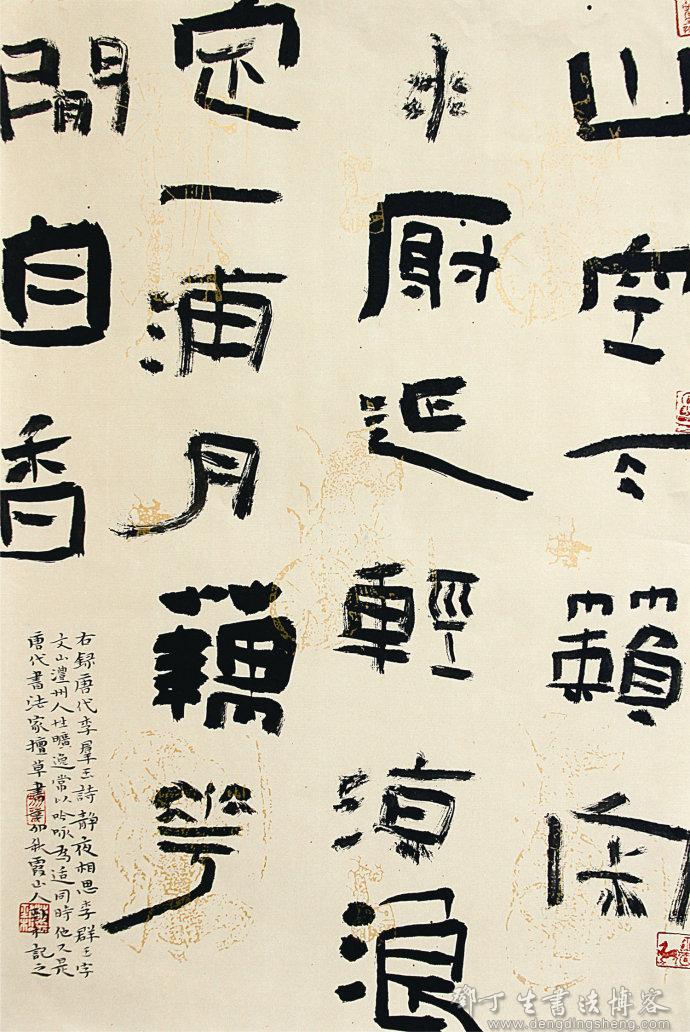 山空天籟寂
水榭延輕涼浪
定一浦月藕花
閒自香
右録唐代李羣玉詩静夜相思李群玉字
文山澧州人性曠逸常以吟咏為适同時他又是
唐代書法家擅草書辛卯秋霞山人記之
鄧丁生書法博客
www.dengdingsheng.com